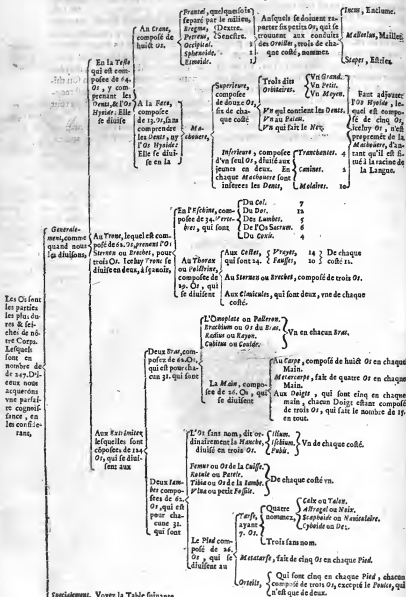 Les Os sont
les parties
les plus du-
res & sei-
ches de nô-
tre Corps.
Lesquels
sont en
nombre de
de 247. D'i-
ceux nous
acquerons
vne parfai-
te cognois-
sance, en
les conside-
rans,
Generale-
ment, comme
quand nous
les diuisons,
En la Teste
qui est com-
posée de 64.
Os, y com-
prenant les
Dents, & l'Os
Hyoide: Elle
se diuise
En Crane,
composé de
huict Os.
Frontal, quelquesfois
separé par le milieu,
Bregma, Dextre.
Petreux, Senestre.
Occipital. 1
Sphenoide. 1
Etmoide. 1
Ausquels se doiuent rap-
porter six petits Os, qui se
trouuent aux conduits
des Oreilles, trois de cha-
que costé, nommez
Incus, Enclume.
Malleolus, Maillet.
Stapes, Estries.
A la Face,
composée
de 13. Os, sans
comprendre
les Dents, ny
l'Os Hyoide:
Elle se diui-
se en la
Ma-
choüere,
Superieure,
composée
de douze Os,
six de cha-
que costé
Trois dits
Orbitaires.
Vn Grand.
Vn Petit.
Vn Moyen.
Vn qui contient les Dents.
Vn au Palais.
Vn qui fait le Nez.
Inferieure, composée
d'vn seul Os, diuisé aux
jeunes en deux. En
chaque Machouere sont
inserées les Dents,
Tranchantes. 4
Canines. 2
Molaires. 10
Faut adjouter
l'Os Hyoide, le-
quel est compo-
sé de cinq Os,
iceluy Os, n'est
proprement de la
Machoüere, d'au-
tant qu'il est si-
tué à la racine de
la Langue.
Au Tronc, lequel est com-
posé de 62. Os, prenant l'Os
Sternon ou Brechet, pour
trois Os. Iceluy Tronc se
diuise en deux, à sçauoir,
En l'Eschine, com-
posée de 34. Verte-
bres, qui sont
Du Col. 7
Du Dos. 12
Des Lumbes. 5
De l'Os Sacrum. 6
Du Coxis. 4
Au Thorax
ou Poictrine,
composée de
29. Os, qui
se diuisent
Aux Costes,
qui sont 24.
Vrayes, 14
Fausses, 10
De chaque
costé 12.
Au Sternon ou Brechet, composé de trois Os.
Aux Clauicules, qui sont deux, vne de chaque
costé.
Aux Extremitez
lesquelles sont
composées de 124
Os, qui se diui-
sent aux
Deux Bras, com-
posez de 62. Os,
qui est pour cha-
cun 31. qui sont
L'Omoplate ou Palleron.
Brachium ou Os du Bras.
Radius ou Rayon.
Cubitus ou Coulde.
Vn en chacun Bras.
La Main, compo-
sée de 26. Os, qui
se diuisent
Au Carpe, composé de huict Os en chaque
Main.
Metacarpe, fait de quatre Os en chaque
Main.
Aux Doigts, qui sont cinq en chaque
main, chacun Doigt estant composé
de trois Os, qui fait le nombre de 15.
en tout.
Deux Iam-
bes compo-
sées de 62.
Os, qui est
pour cha-
cune 31.
qui sont
L'Os sans nom, dit or-
dinairement la Hanche,
diuisé en trois Os.
Ilium.
Ischium.
Pubis.
Vn de chaque costé.
Femur ou Os de la Cuisse.
Rotule ou Patele.
Tibia ou Os de la Iambe.
Vlna ou petit Fossile.
De chaque costé vn.
Le Pied com-
posé de 26.
Os, qui se
diuisent au
Tarse,
ayant
7. Os.
Quatre
nommez,
Calx ou Talon.
Astragal ou Noix.
Scaphoide ou Nauiculaire.
Cyboide ou Dez.
Trois sans nom.
Metatarse, fait de cinq Os en chaque Pied.
Orteils,
Qui sont cinq en chaque Pied, chacun
composé de trois Os, excepté le Poulce, qui
n'est que de deux.
Specialement. Voyez la Table suiuante.